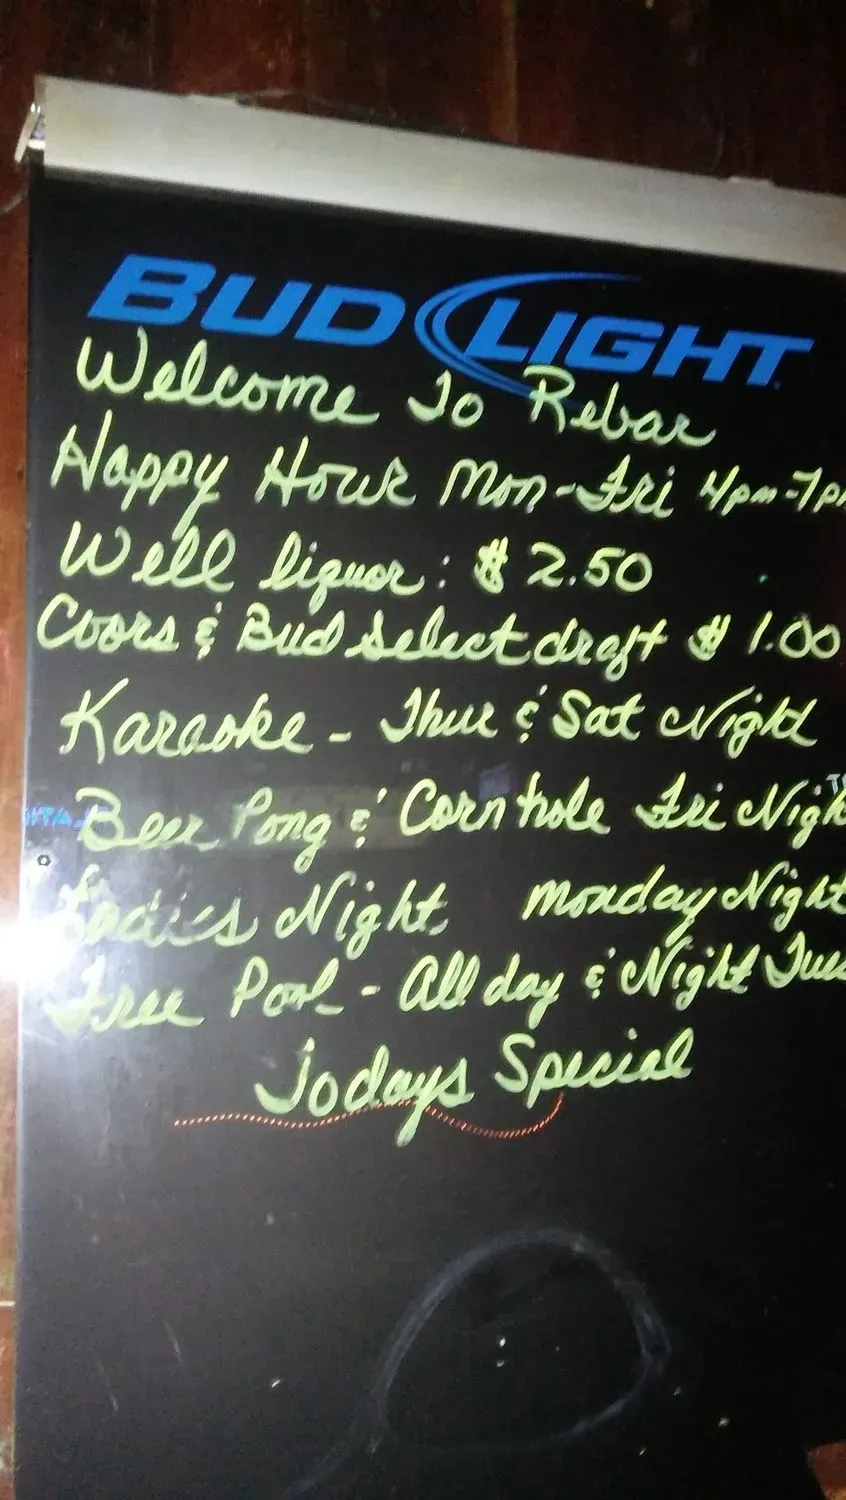 BUD LIGHT
Welcome To Rebar
Happy Hour Mon-Fri 4pm-7p
Well liquor: $2.50
Coors & Bud Select draft $1.00
Karaoke - Thur & Sat Night
Beer Pong & Corn hole Fri Nigh
Ladies Night Monday Night
Free Pool - All day & Night Tues
Todays Special